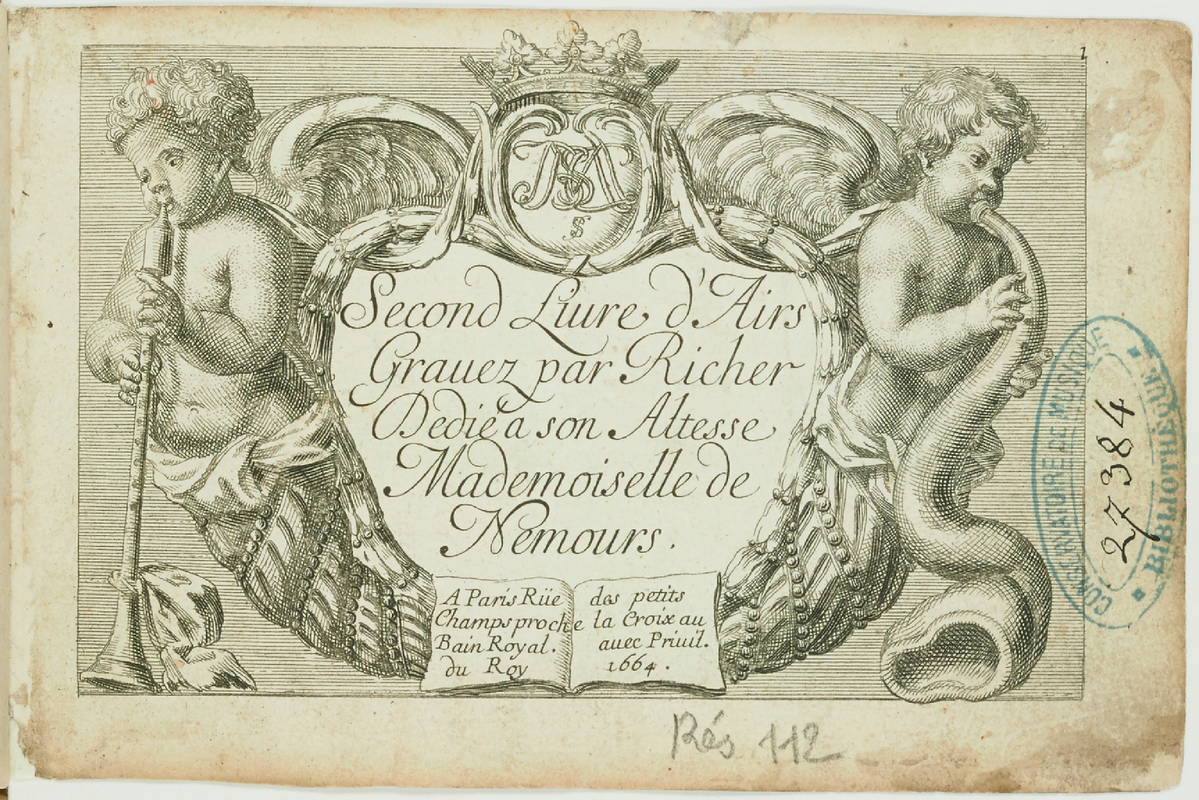 1
Second Liure d'Airs
Grauez par Richer
Dedié a son Altesse
Mademoiselle de
Nemours.
A Paris Rüe des petits
Champs proche la Croix au
Bain Royal. auec Priuil.
du Roy 1664.
CONSERVATOIRE DE MUSIQUE
27384
* BIBLIOTHEQUE *
Rés 112